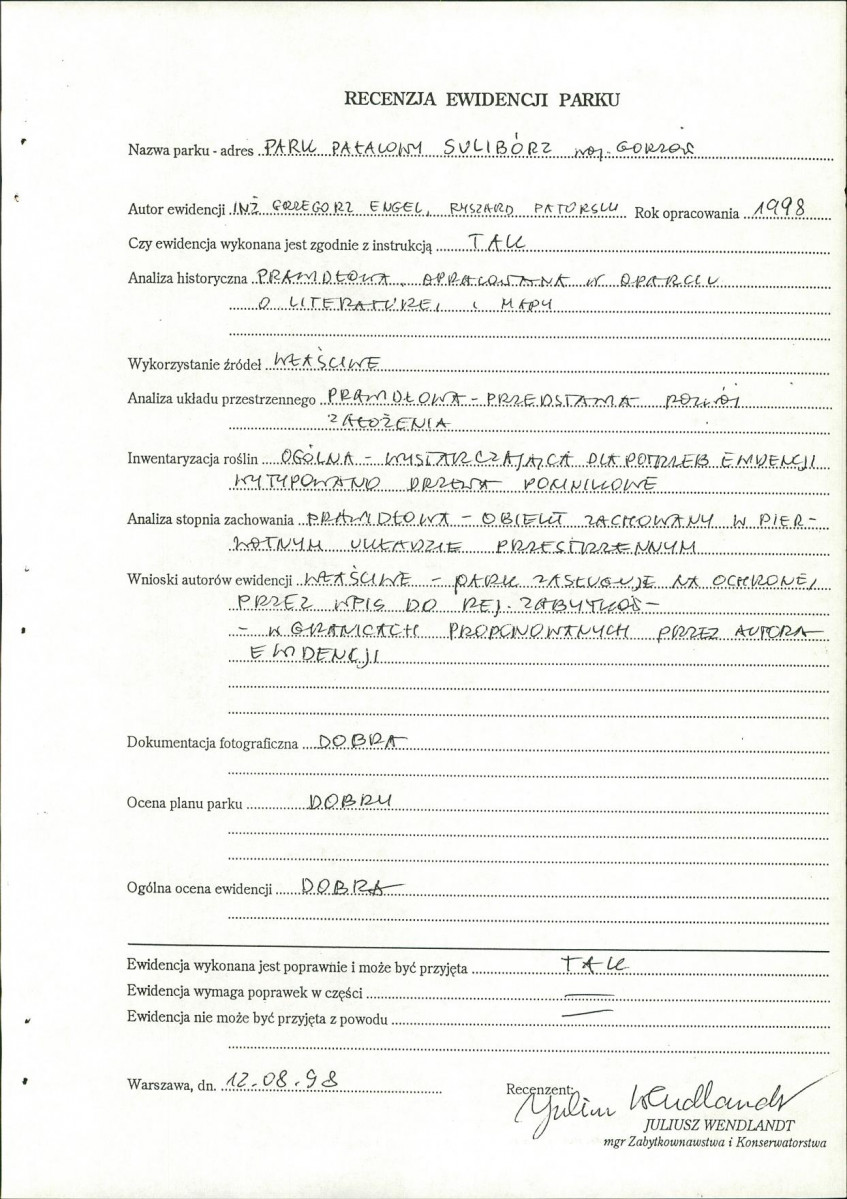 RECENZJA EWIDENCJI PARKU
Nazwa parku - adres PARK PAŁACOWY SULIBÓRZ woj. GORZÓW
Autor ewidencji INŻ GRZEGORZ ENGEL, RYSZARD PATORSKI Rok opracowania 1998
Czy ewidencja wykonana jest zgodnie z instrukcją TAK
Analiza historyczna PRAWIDŁOWA, OPRACOWANA W OPARCIU
O LITERATURĘ, I MAPY
Wykorzystanie źródeł WŁAŚCIWE
Analiza układu przestrzennego PRAWIDŁOWA - PRZEDSTAWIA ROZWÓJ
ZAŁOŻENIA
Inwentaryzacja roślin OGÓLNA - WYSTARCZAJĄCA DLA POTRZEB EWIDENCJI
WYTYPOWANO DRZEWA POMNIKOWE
Analiza stopnia zachowania PRAWIDŁOWA - OBIEKT ZACHOWANY W PIER-
WOTNYM UKŁADZIE PRZESTRZENNYM
Wnioski autorów ewidencji WŁAŚCIWE - PARK ZASŁUGUJE NA OCHRONĘ,
PRZEZ WPIS DO REJ. ZABYTKÓW -
- W GRANICACH PROPONOWANYCH PRZEZ AUTORA
EWIDENCJI
Dokumentacja fotograficzna DOBRA
Ocena planu parku DOBRY
Ogólna ocena ewidencji DOBRA
Ewidencja wykonana jest poprawnie i może być przyjęta TAK
Ewidencja wymaga poprawek w części —
Ewidencja nie może być przyjęta z powodu —
Warszawa, dn. 12.08.98
Recenzent:
Juliusz Wendlandt
JULIUSZ WENDLANDT
mgr Zabytkownawstwa i Konserwatorstwa